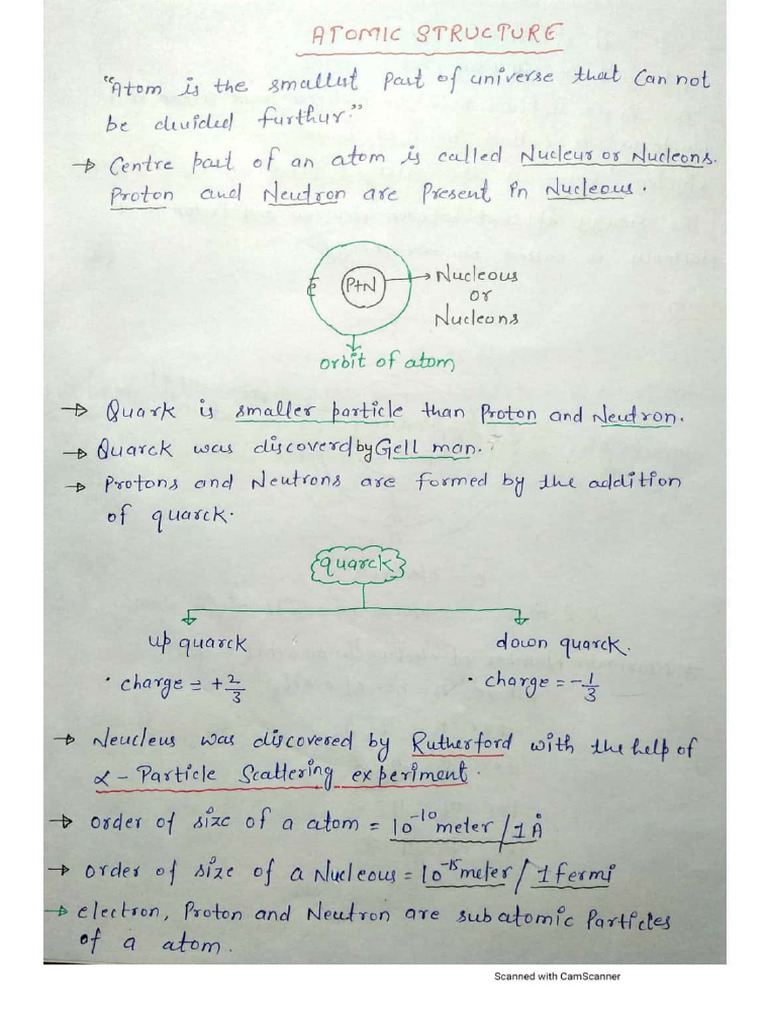 ATOMIC STRUCTURE
"Atom is the smallest part of universe that can not
be devided furthur."
→ Centre part of an atom is called Nucleus or Nucleons.
Proton and Neutron are present in Nucleous.
e⁻
P+N
→ Nucleous
or
Nucleons
orbit of atom
→ Quark is smaller particle than Proton and Neutron.
→ Quarck was discovered by Gell man.
→ Protons and Neutrons are formed by the addition
of quarck.
quarck
up quarck
down quarck.
• charge = +2/3
• charge = -1/3
→ Neucleus was discovered by Rutherford with the help of
α - Particle Scattering experiment.
→ order of size of a atom = 10⁻¹⁰ meter / 1 Å
→ order of size of a Nucleous = 10⁻¹⁵ meter / 1 fermi
→ electron, Proton and Neutron are subatomic Particles
of a atom.
Scanned with CamScanner